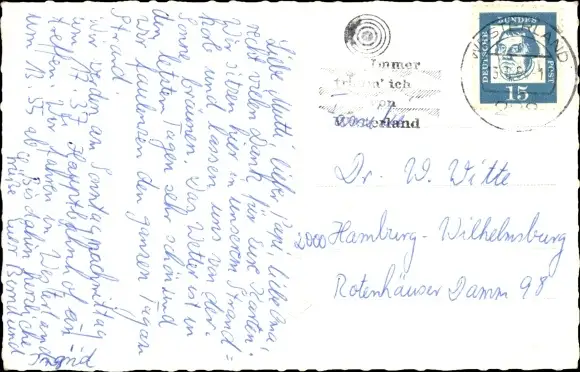 Liebe Mutti, lieber Papi, liebe Oma,
recht vielen Dank für Eure Karten.
Wir sitzen hier in unserem Strand=
korb und lassen uns von der
Sonne bräunen. Das Wetter ist in
den letzten Tagen sehr schön und
wir faulenzen den ganzen Tag am
Strand.
Wir werden am Sonntagnachmittag
um 17.37 Hauptbahnhof an
treffen. Wir fahren in Westerland
um 13.55 ab. Bis dahin herzliche
Grüße Eure
und
Immer
ich
von
Westerland
WESTERLAND
DEUTSCHE BUNDESPOST
15
Dr. W. Witte
2000 Hamburg-Wilhelmsburg
Rotenhäuser Damm 98